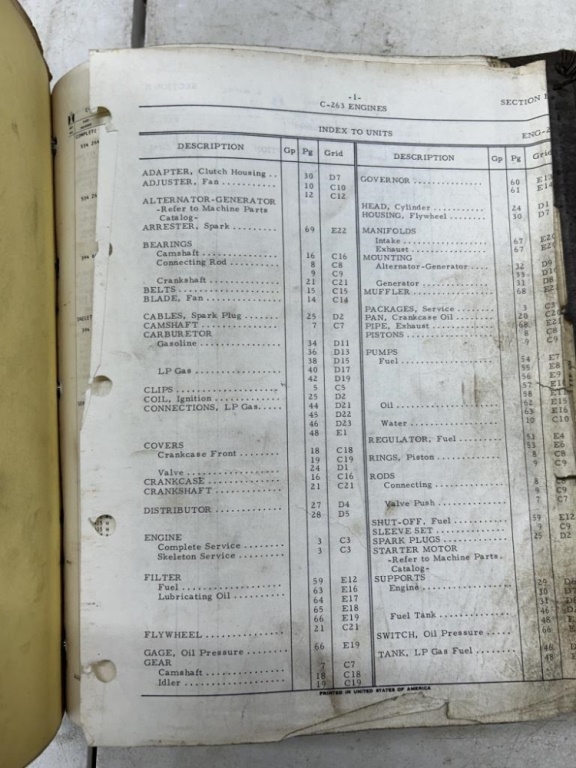 -1-
C-263 ENGINES
SECTION
INDEX TO UNITS
ENG-2
DESCRIPTION Gp Pg Grid
ADAPTER, Clutch Housing .. 30 D7
ADJUSTER, Fan ........... 10 C10
12 C12
ALTERNATOR-GENERATOR
-Refer to Machine Parts
Catalog-
ARRESTER, Spark ......... 69 E22
BEARINGS
Camshaft ............... 16 C16
Connecting Rod ......... 8 C8
9 C9
Crankshaft ............. 21 C21
BELTS .................. 15 C15
BLADE, Fan ............. 14 C14
CABLES, Spark Plug ....... 25 D2
CAMSHAFT ............... 7 C7
CARBURETOR
Gasoline ............... 34 D11
36 D13
38 D15
LP Gas ................. 40 D17
42 D19
CLIPS .................. 5 C5
COIL, Ignition ........... 25 D2
CONNECTIONS, LP Gas.... 44 D21
45 D22
46 D23
48 E1
COVERS
Crankcase Front ........ 18 C18
19 C19
Valve .................. 24 D1
CRANKCASE .............. 16 C16
CRANKSHAFT ............. 21 C21
DISTRIBUTOR ............ 27 D4
28 D5
ENGINE
Complete Service ........ 3 C3
Skeleton Service ........ 3 C3
FILTER
Fuel ................... 59 E12
Lubricating Oil ......... 63 E16
64 E17
65 E18
66 E19
FLYWHEEL ............... 21 C21
GAGE, Oil Pressure ....... 66 E19
GEAR
Camshaft ............... 7 C7
18 C18
Idler .................. 19 C19
DESCRIPTION Gp Pg Grid
GOVERNOR ............... 60 E13
61 E14
HEAD, Cylinder .......... 24 D1
HOUSING, Flywheel ....... 30 D7
MANIFOLDS
Intake ................. 67
Exhaust ................ 67
MOUNTING
Alternator-Generator .... 32 D9
33
Generator .............. 31 D8
MUFFLER ................ 68
PACKAGES, Service
PAN, Crankcase Oil ....... 20
PIPE, Exhaust ........... 68
PISTONS ................ 8
9
PUMPS
Fuel ................... 54 E7
55 E8
56 E9
57
58
Oil .................... 62 E15
63 E16
Water .................. 10 C10
REGULATOR, Fuel ........ 51 E4
53 E6
RINGS, Piston ........... 8 C8
9 C9
RODS
Connecting ............. 8
9
Valve Push ............. 7 C7
SHUT-OFF, Fuel .......... 59 E12
SLEEVE SET ............. 9 C9
SPARK PLUGS ............ 25 D2
STARTER MOTOR
-Refer to Machine Parts
Catalog-
SUPPORTS
Engine
Fuel Tank
SWITCH, Oil Pressure
TANK, LP Gas Fuel
PRINTED IN UNITED STATES OF AMERICA